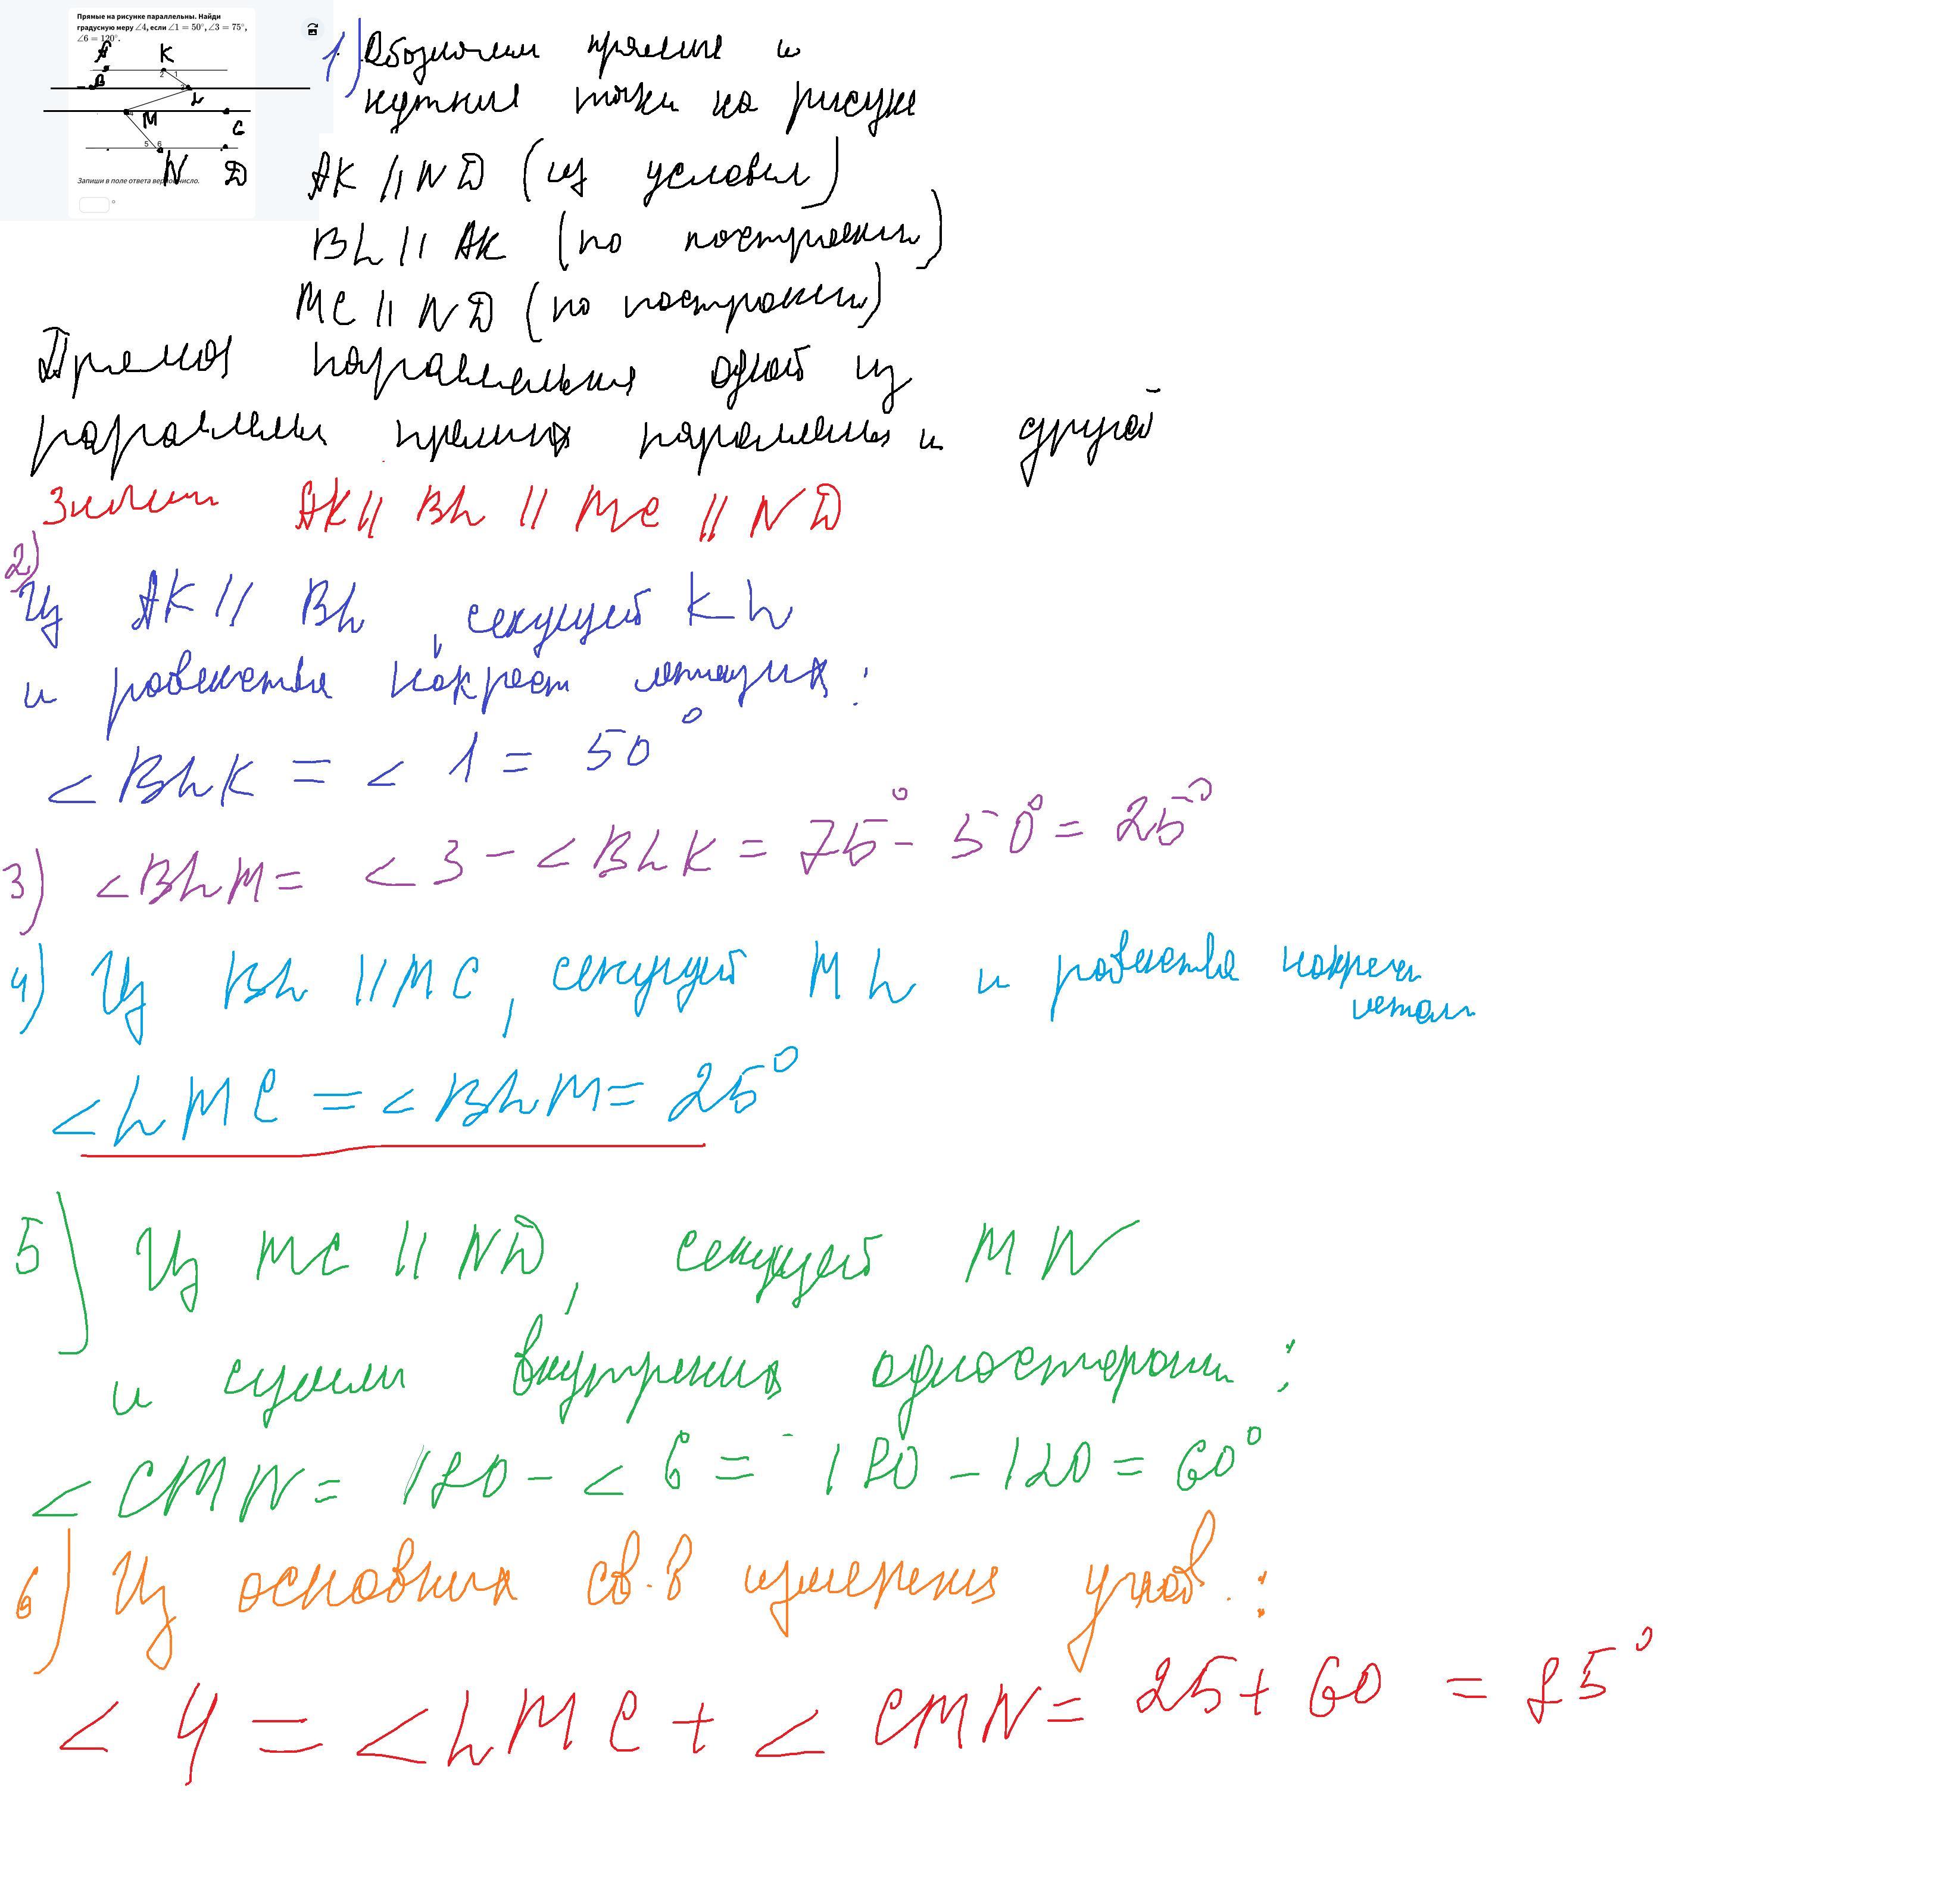 Прямые на рисунке параллельны. Найди
градусную меру ∠4, если ∠1 = 50°, ∠3 = 75°,
∠6 = 120°.
A K
2 1
B
3
L
4
M C
5 6
N D
Запиши в поле ответа верное число.
°
1) Обозначим прямые и
нужные точки на рисунке
AK || ND (из условия)
BL || AK (по построению)
MC || ND (по построению)
Прямая параллельная одной из
параллельных прямых параллельна и другой
Значит AK || BL || MC || ND
2)
Из AK || BL, секущей KL
и равенства накрест лежащих:
<BLK = <1 = 50°
3) <BLM = <3 - <BLK = 75° - 50° = 25°
4) Из BL || MC, секущей ML и равенства накрест
лежащ
<LMC = <BLM = 25°
5) Из MC || ND, секущей MN
и суммы внутренних односторонн:
<CMN = 180 - <6 = 180 - 120 = 60°
6) Из основных св-в измерения углов:
<4 = <LMC + <CMN = 25 + 60 = 85°